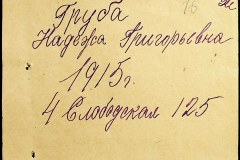 Груба
Надежа Григорьевна
1915г.
4 Слободская 125